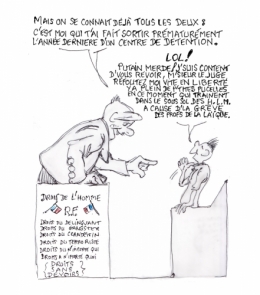 MAIS ON SE CONNAIT DÉJÀ TOUS LES DEUX :
C'EST MOI QUI T'AI FAIT SORTIR PRÉMATURÉMENT
L'ANNÉE DERNIERE D'UN CENTRE DE DETENTION.
LOL!
PUTAIN MERDE! J'SUIS CONTENT
D'VOUS REVOIR, M'SIEUR LE JUGE
MOI VITE EN LIBERTÉ
YA PLEIN DE PUCELLES
EN CE MOMENT QUI TRAINENT
DANS LE SOUS SOL DES H.L.M.
A CAUSE D'LA GRÈVE
DES PROFS DE LA LAÏQUE.
DROITS DE L'HOMME
R.F
DROIT DU DELINQUANT
DROITS DU
DROIT DU CLANDESTIN
DROITS DU
DROIT DU N'IMPORTE QUI
DROITS A N'IMPORTE QUOI
DROITS
SANS
DEVOIRS